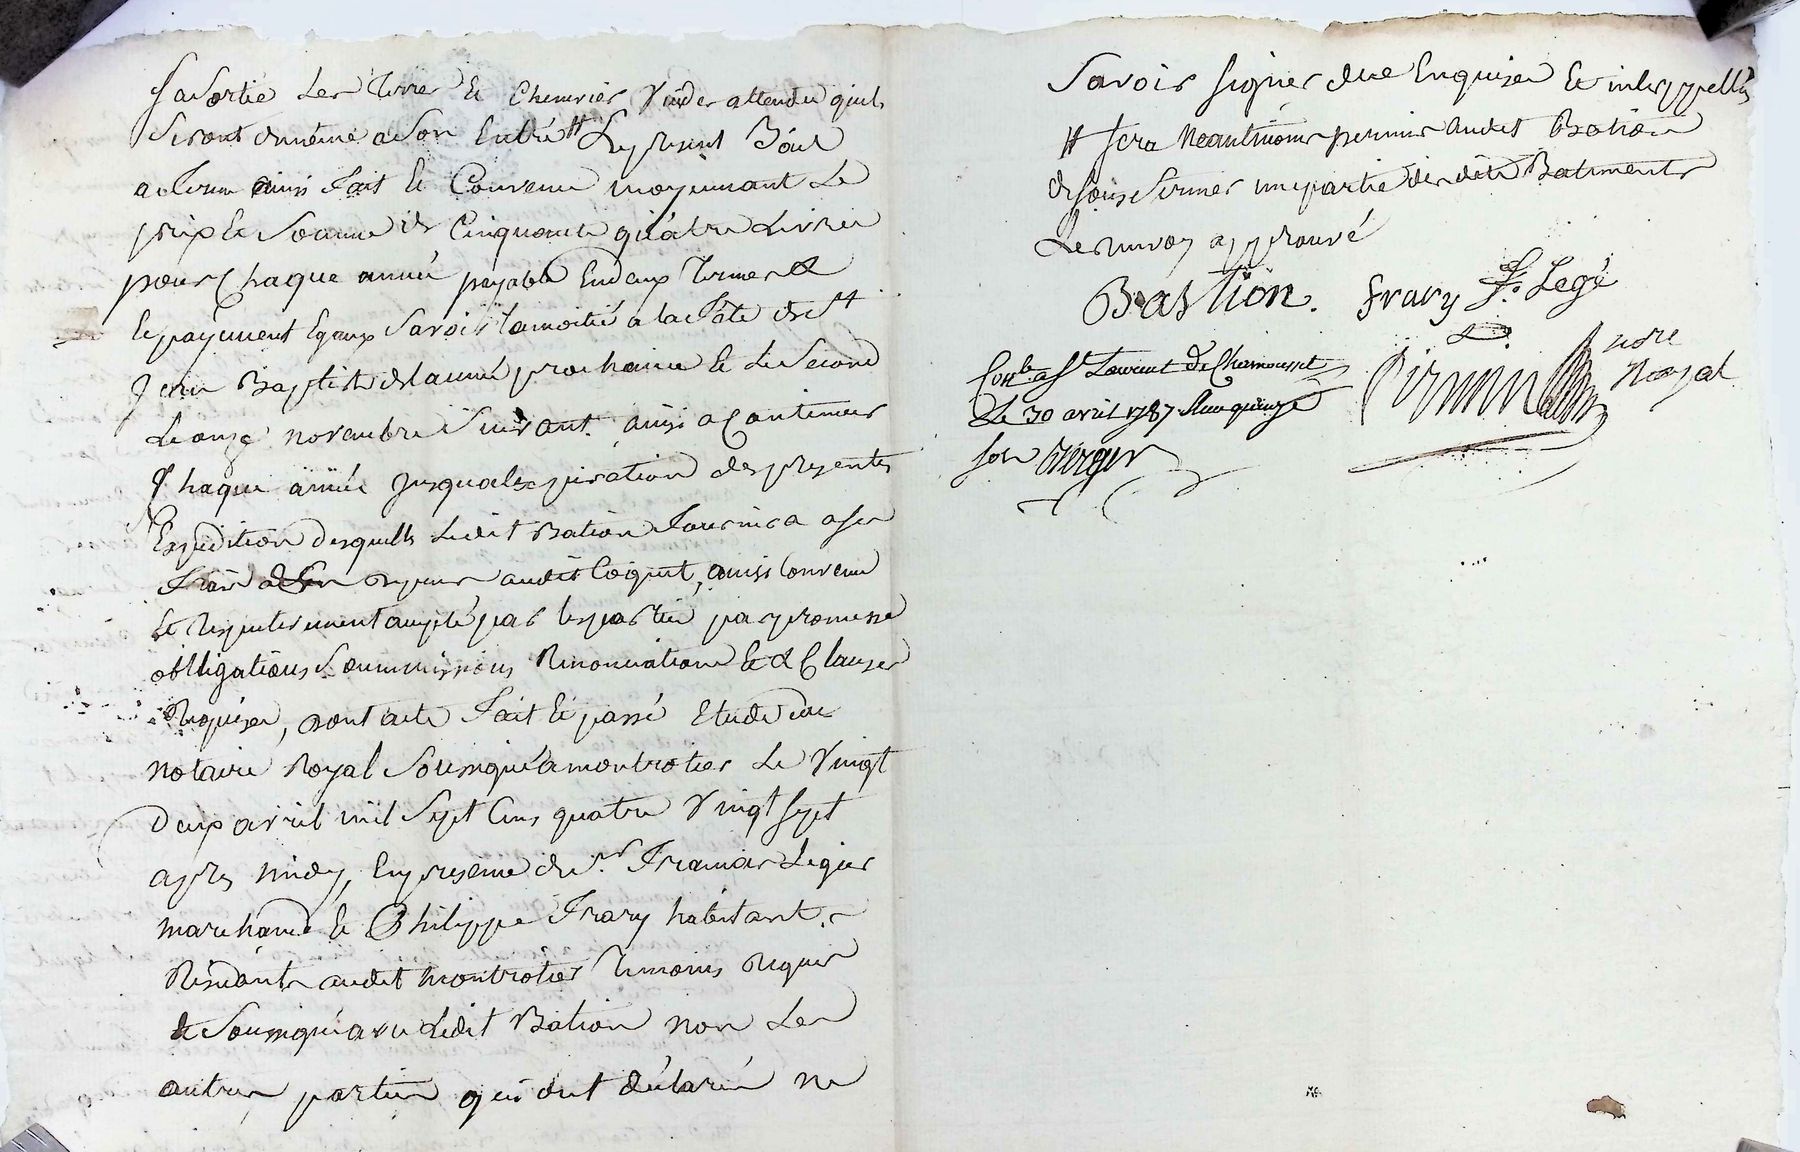 Sa Sortie les Terres et cheneviers Vuides attendu quils
Seront de même a Son Entrée # Le present Bail
a ferme ainsi fait et Convenu moyennant Le
prix et Somme de Cinquante quatre Livres
pour Chaque année payable En deux Termes &
et payement Egaux Savoir la moitié a la fête de St
Jean Baptiste de lannée prochaine et Le Second
Le onze novembre Suivant, ainsi a Continuer
Chaque année jusqua lexpiration des presentes
Expedition desquelles Ledit Bation fournira a ses
frais audit Coquet, ainsi convenu
et Respectivement accepté par les parties par promesse
obligations Soummissions Renonciations et & Clauses
Requises, dont acte fait et passé Etude du
notaire Royal Soussigné a montrotier Le Vingt
Deux avril mil Sept Cens quatre Vingt Sept
après midy, En presence de Sr. francois Legier
marchand et Philippe frary habitant
Residants audit montrotier Temoins Requis
& Soussigné avec Ledit Bation non Les
autres parties qui ont déclaré ne
Savoir signer de ce Enquises Et interppellés
# sera Neantmoins permis audit Bation
de sous fermer une partie des dits Batiments
Le renvoy approuvé
Bastion. frary f. Legé
Conlé. a St Laurent de Chamousset
Le 30 avril 1787 Reçu quinze
sols Verger
notre
Royal